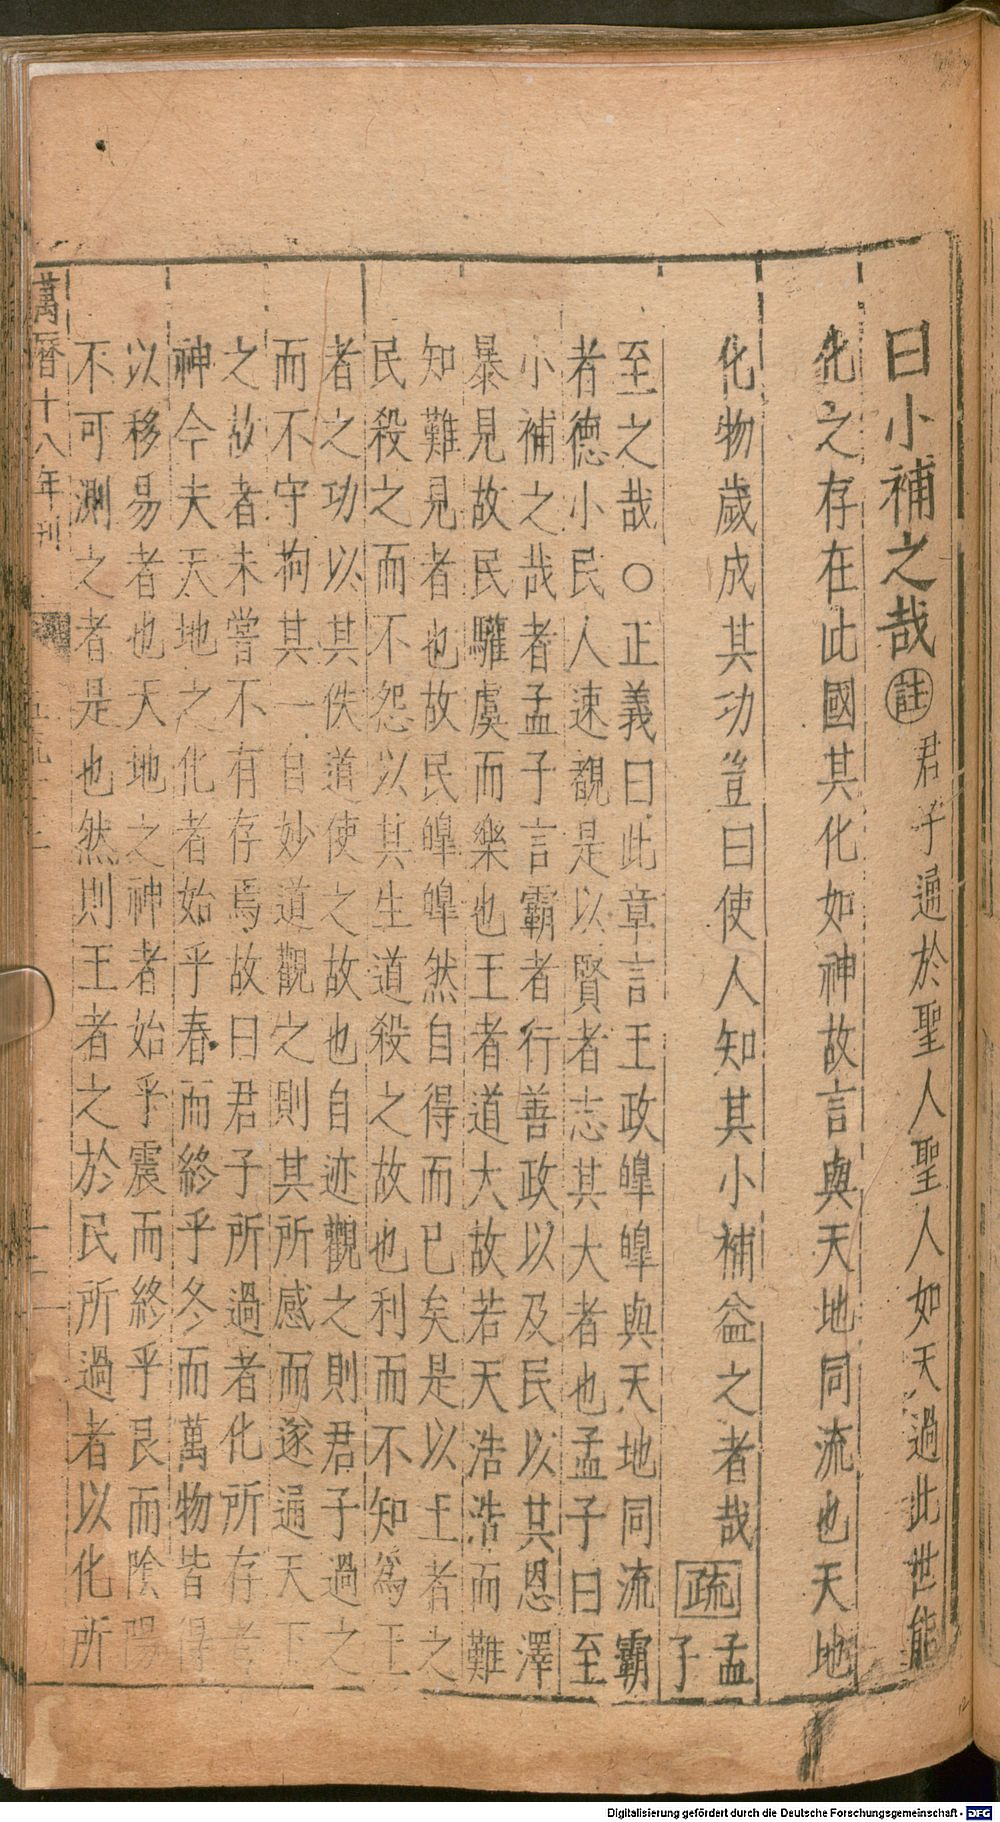 曰小補之哉註君子通於聖人聖人如天過此世能
化之存在此國其化如神故言與天地同流也天地
化物歲成其功豈曰使人知其小補益之者哉疏孟子
至之哉○正義曰此章言王政皥皥與天地同流霸
者德小民人速覩是以賢者志其大者也孟子曰至
小補之哉者孟子言霸者行善政以及民以其恩澤
暴見故民驩虞而樂也王者道大故若天浩浩而難
知難見者也故民皥皥然自得而已矣是以王者之
民殺之而不怨以其生道殺之故也利而不知為王
者之功以其佚道使之故也自迹觀之則君子過之
而不守拘其一自妙道觀之則其所感而遂通天下
之故者未嘗不有存焉故曰君子所過者化所存者
神今夫天地之化者始乎春而終乎冬而萬物皆得
以移易者也天地之神者始乎震而終乎艮而陰陽
不可測之者是也然則王者之於民所過者以化所
萬曆十八年刊
Digitalisierung gefördert durch die Deutsche Forschungsgemeinschaft - DFG